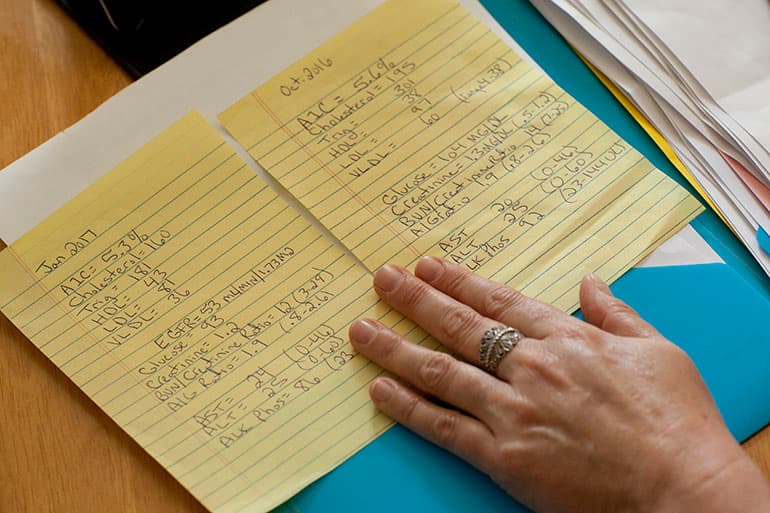 Oct. 2016
A1C = 5.6%
Cholesterol = 195
Trig = 301
HDL = 38
LDL = 97
VLDL = 60
Glucose = 104 MG/DL
Creatinine = 1.3 MG/DL (.5-1.2)
BUN/Creat ratio 14 (7-25)
A/G Ratio 1.9 (.8-2.6)
AST 20 (0-46)
ALT = 25 (0-60)
ALK Phos 92 (23-144 U/L)
Jan 2017
A1C = 5.3%
Cholesterol = 160
Trig = 181
HDL = 43
LDL =
VLDL = 36
EGFR = 53 ml/min/1.73m2
Glucose = 93
Creatinine = 1.2
BUN/Creatinine Ratio = 12 (3-29)
A/G Ratio = 1.9 (.8-2.6)
AST = 24 (0-46)
ALT = 25 (0-60)
ALK Phos = 86 (23